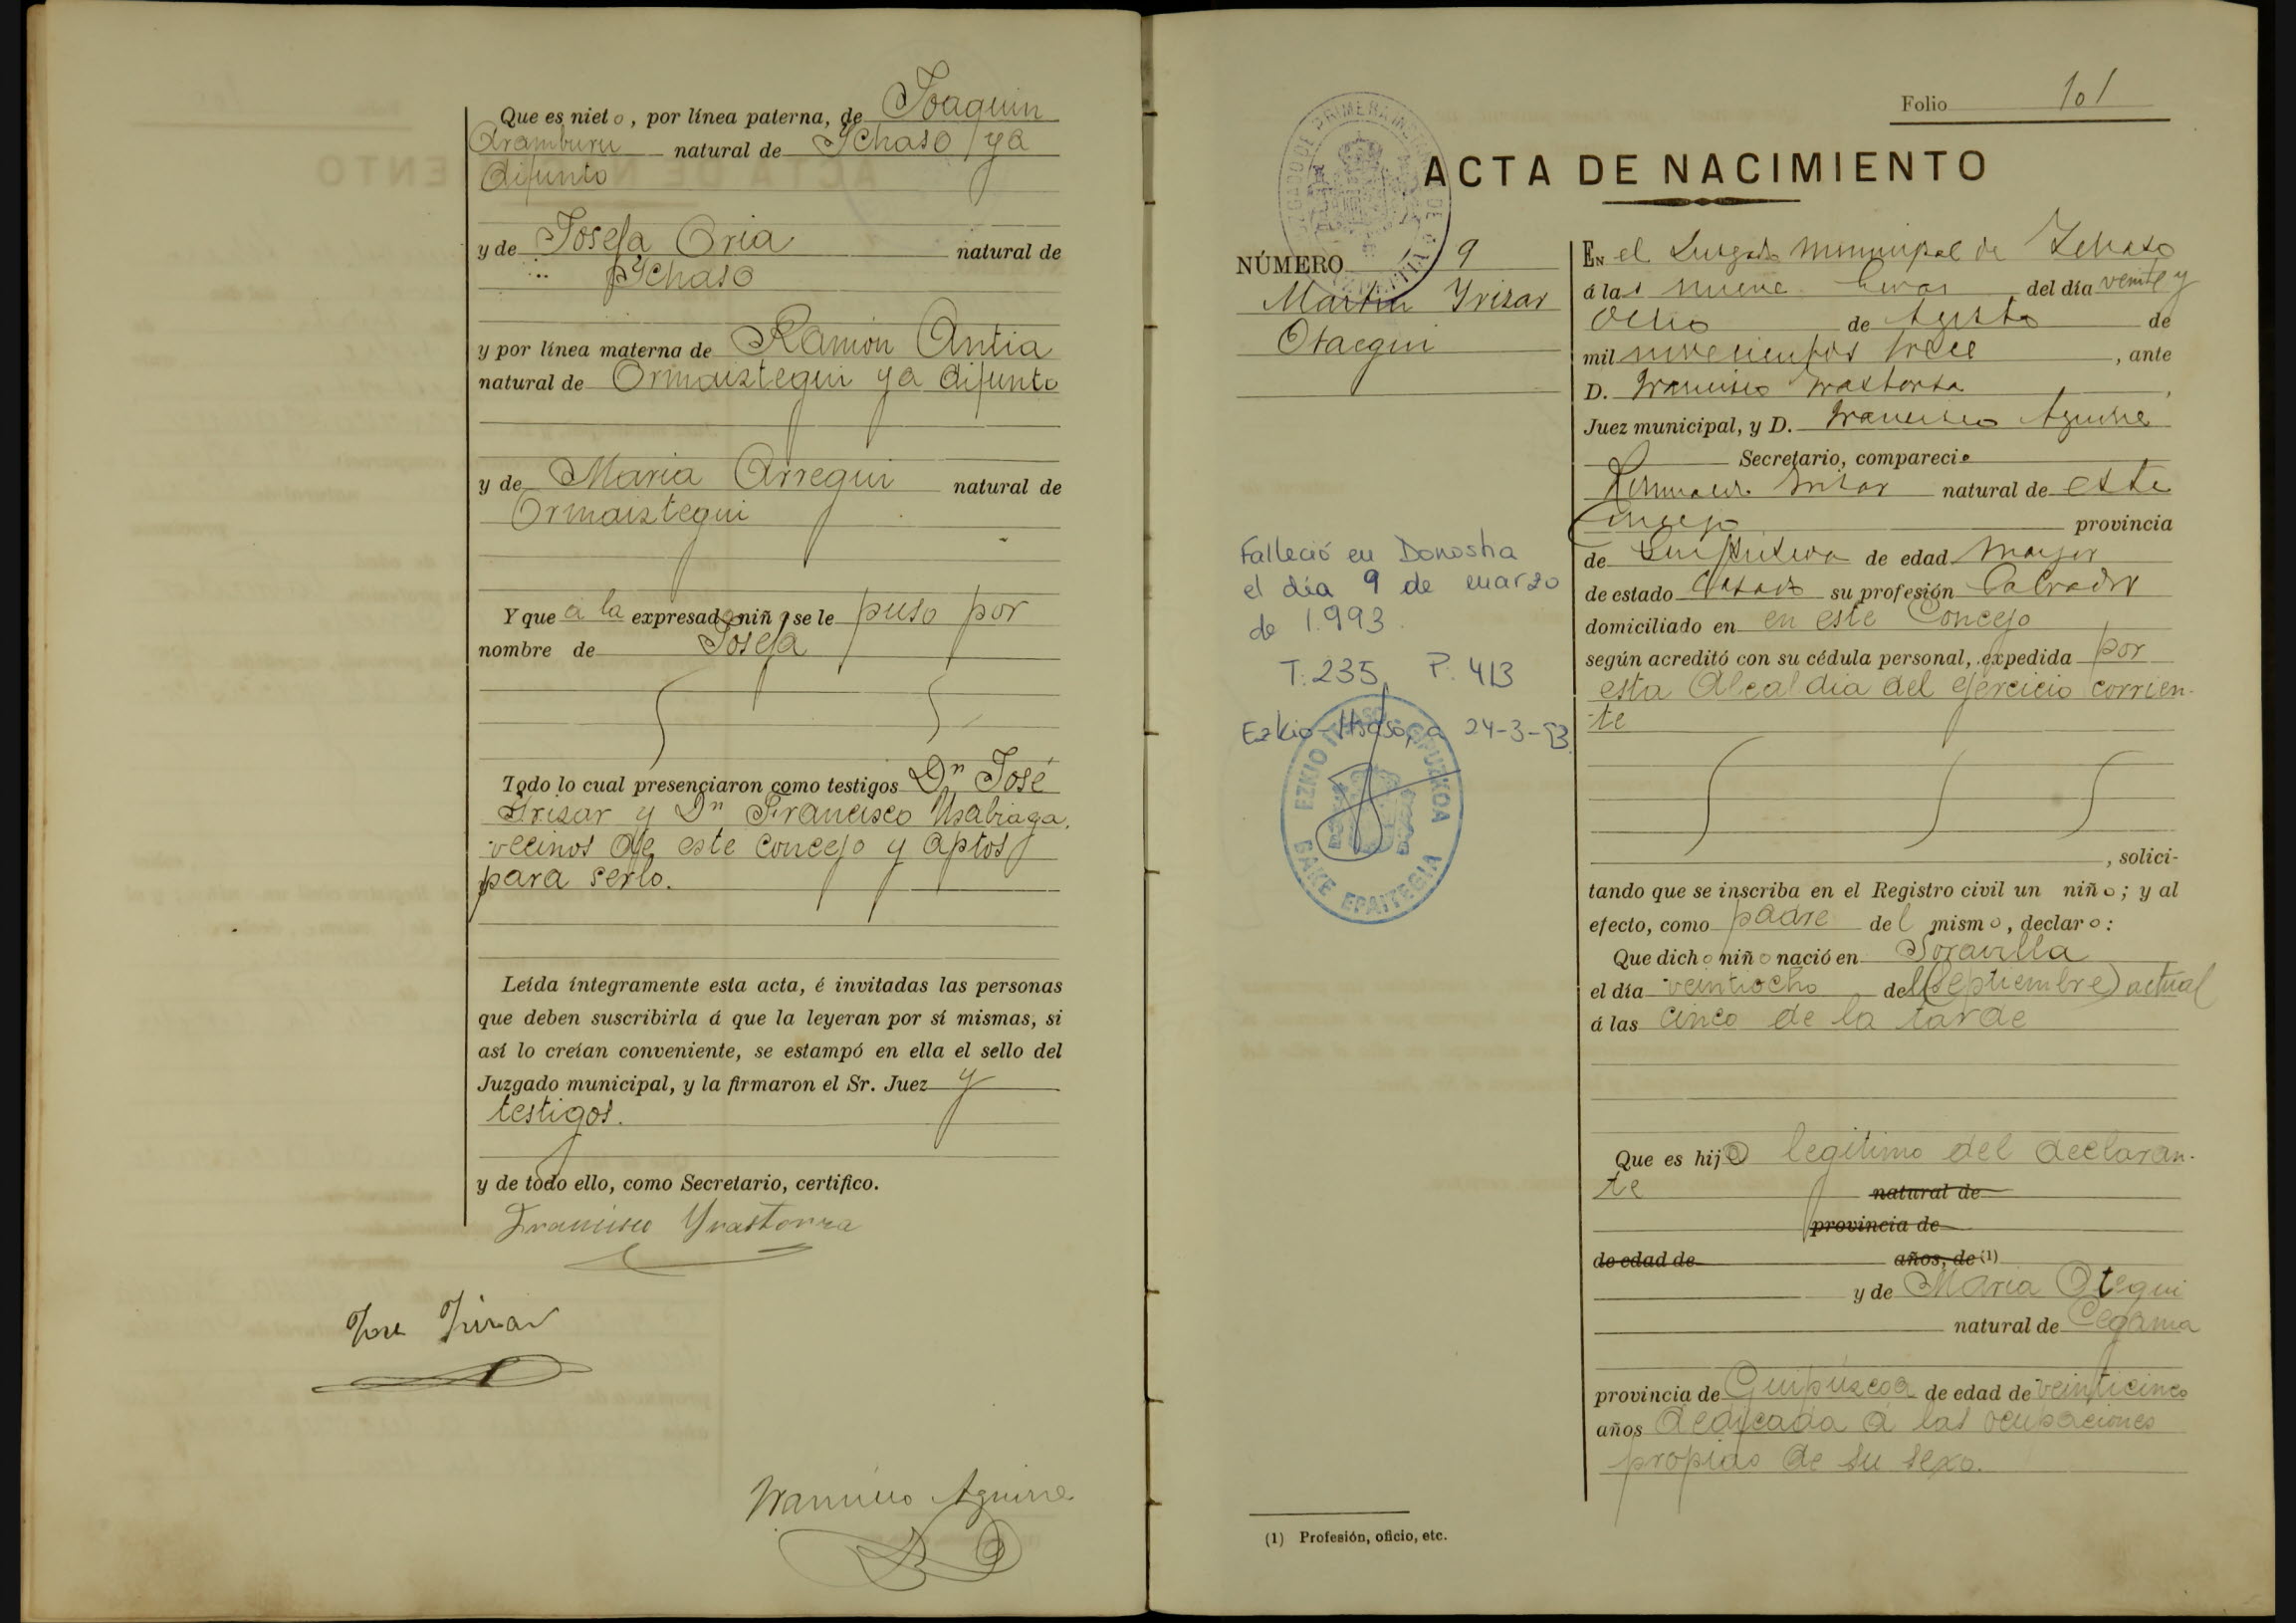 Que es nieto, por línea paterna, de Joaquin
Aramburu natural de Ychaso ya
difunto
y de Josefa Oria natural de
Ychaso
y por línea materna de Ramón Antia
natural de Ormaiztegui ya difunto
y de Maria Arregui natural de
Ormaiztegui
Y que a la expresada niña se le puso por
nombre de Josefa
Todo lo cual presenciaron como testigos Dn José
Irizar y Dn Francisco Usabiaga,
vecinos de este concejo y aptos
para serlo.
Leída íntegramente esta acta, é invitadas las personas
que deben suscribirla á que la leyeran por sí mismas, si
así lo creían conveniente, se estampó en ella el sello del
Juzgado municipal, y la firmaron el Sr. Juez y
testigos.
y de todo ello, como Secretario, certifico.
Francisco Yrastorza
José Irizar
Francisco Aguirre
Folio 101
ACTA DE NACIMIENTO
NÚMERO 9
Martin Yrizar
Otaegui
Falleció en Donostia
el día 9 de marzo
de 1.993.
T: 235 P. 413
Ezkio-Itsaso, a 24-3-93
EZKIO ITSASO GIPUZKOA
BAKE EPAITEGIA
En el Juzgado municipal de Ichaso
á las nueve horas del día veinte y
ocho de Agosto de
mil novecientos trece, ante
D. Francisco Irastorza
Juez municipal, y D. Francisco Aguirre
Secretario, compareció
Irizar natural de este
Concejo provincia
de Guipúzcoa de edad mayor
de estado casado su profesión labrador
domiciliado en en este Concejo
según acreditó con su cédula personal, expedida por
esta Alcaldia del ejercicio corrien-
te
, solici-
tando que se inscriba en el Registro civil un niño; y al
efecto, como padre del mismo, declaro:
Que dicho niño nació en Soravilla
el día veintiocho del (Septiembre) actual
á las cinco de la tarde
Que es hijo legítimo del declaran-
te natural de
provincia de
de edad de años, de (1)
y de Maria Otegui
natural de Cegama
provincia de Guipúzcoa de edad de veinticinco
años dedicada á las ocupaciones
propias de su sexo.
(1) Profesión, oficio, etc.